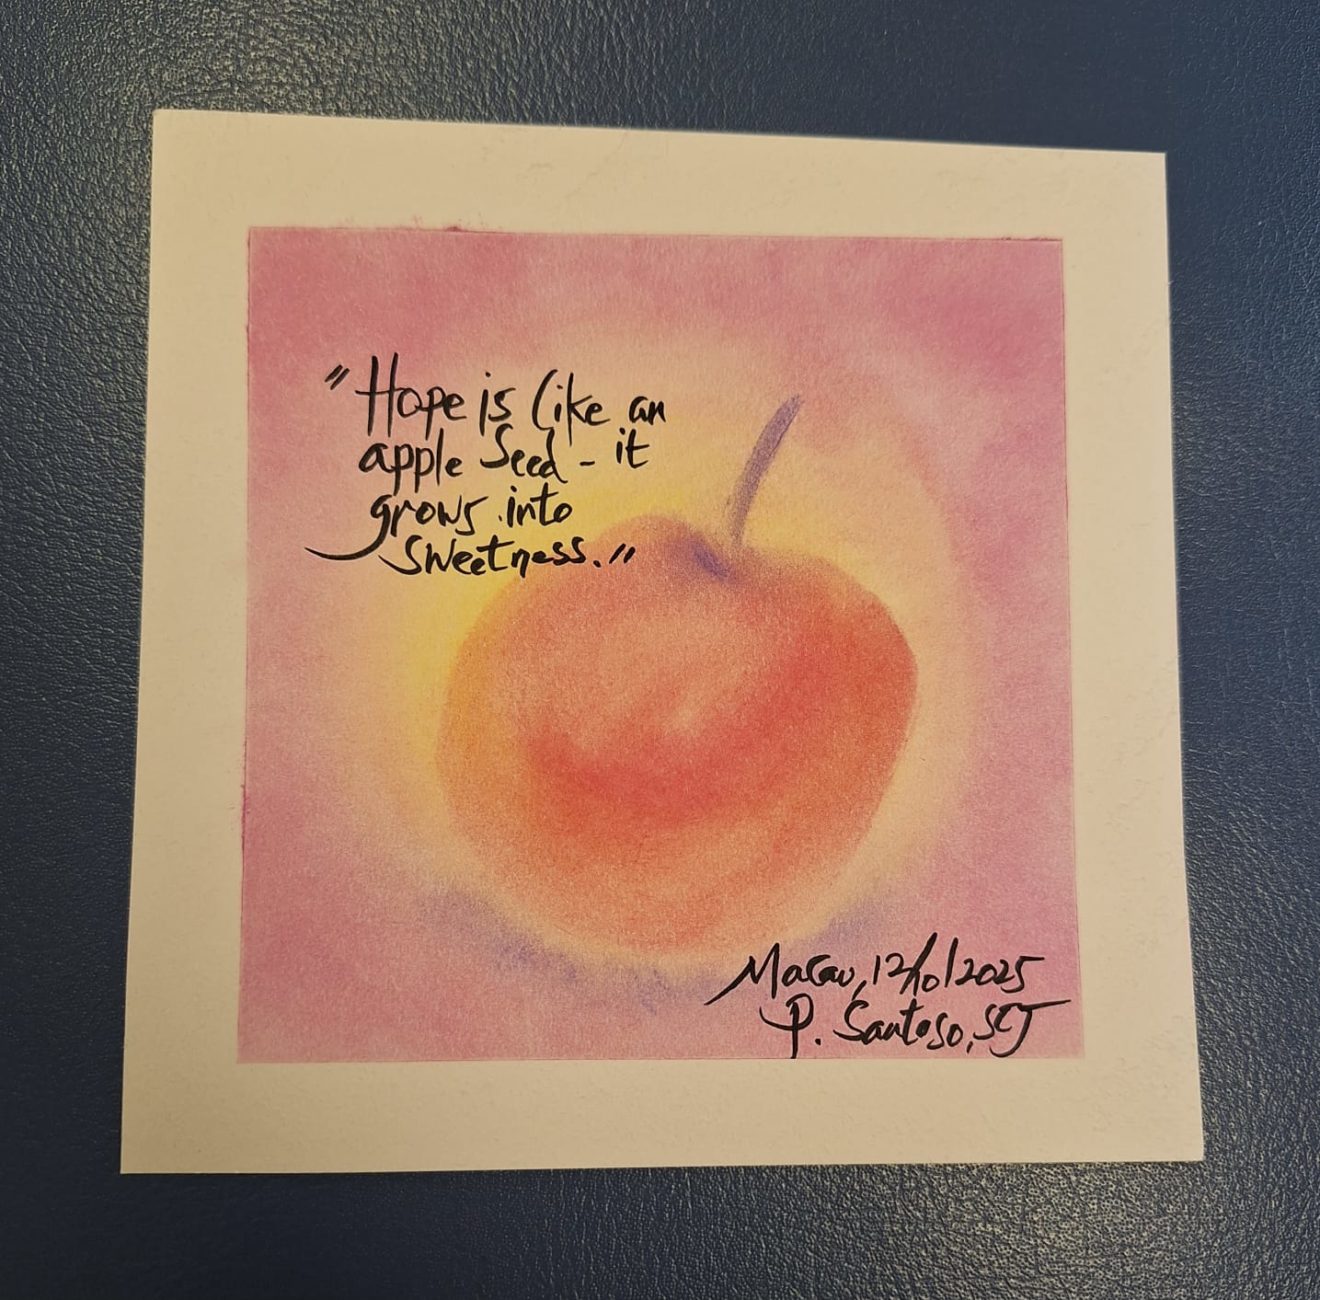 "Hope is like an
apple seed - it
grows into
sweetness."
Macau, 12/10/2025
P. Santoso, SCJ